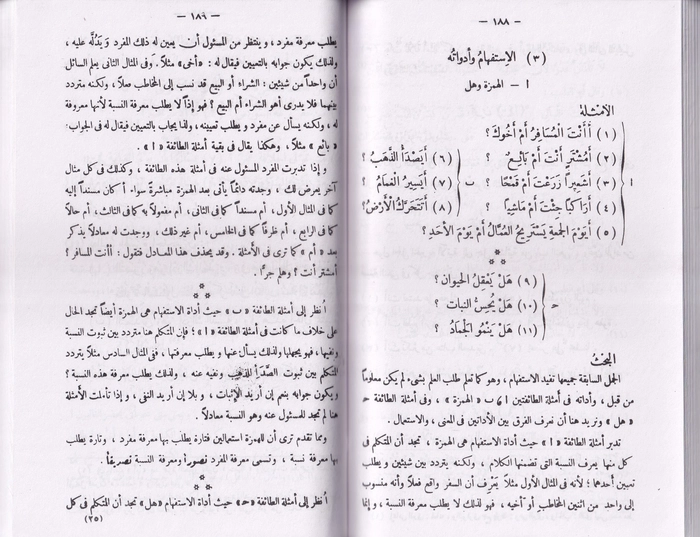 — ١٨٨ —
(٣) الاستفهامُ وأدواتُه
ا — الهمزة وهل
الأمثلة
(١) أَأَنتَ الْمُسَافِرُ أَمْ أَخُوكَ ؟
(٢) أَمُشْتَرٍ أَنتَ أَمْ بَائِعٌ ؟
(٣) أَشَعِيرًا زَرَعْتَ أَمْ قَمْحًا ؟
(٤) أَرَاكِبًا جِئْتَ أَمْ مَاشِيًا ؟
(٥) أَيَوْمَ الْجُمعَةِ يَسْتَرِيحُ الْعُمَّالُ أَمْ يَوْمَ الأَحَدِ ؟
ا
(٦) أَيَصْدَأُ الذَّهَبُ ؟
(٧) أَيَسِيرُ الْغَمَامُ ؟
(٨) أَتَتَحَرَّكُ الأَرْضُ ؟
ب
(٩) هَلْ يَعْقِلُ الْحَيوانُ ؟
(١٠) هَلْ يُحِسُّ النباتُ ؟
(١١) هَلْ يَنْمُو الْجَمَادُ ؟
ح
البحث
الجمل السابقة جميعها تفيد الاستفهام ، وهو كما تعلم طلب العلم بشىء لم يكن معلومًا
من قبل ، وأداته فى أمثلة الطائفتين ا و ب « الهمزة » ، وفى أمثلة الطائفة ح
« هل » ونريد هنا أن نعرف الفرق بين الأداتين فى المعنى ، والاستعمال .
تدبر أمثلة الطائفة « ا » حيث أداة الاستفهام هى الهمزة ، تجد أن المتكلم فى
كل منها يعرف النسبة التى تضمنها الكلام ، ولكنه يتردد بين شيئين و يطلب
تعيين أحدهما ؛ لأنه فى المثال الأول مثلاً يعْرِف أن السفر واقع فعلاً وأنه منسوب
إلى واحد من اثنين المخاطب أو أخيه ، فهو لذلك لا يطلب معرفة النسبة ، و إنما
— ١٨٩ —
يطلب معرفة مفرد ، وينتظر من المسئول أن يعين له ذلك المفرد وَيَدُلَّه عليه ،
ولذلك يكون جوابه بالتعيين فيقال له : « أخى » مثلاً . وفى المثال الثانى يعلم السائل
أن واحداً من شيئين : الشراء أو البيع قد نسب إلى المخاطب فعلاً ، ولكنه متردد
بينهما فلا يدرى أهو الشراء أم البيع ؟ فهو إذاً لا يطلب معرفة النسبة لأنها معروفة
له ، ولكنه يسأل عن مفرد و يطلب تعيينه ، ولذا يجاب بالتعيين فيقال له فى الجواب:
« بائع » مثلاً ، وهكذا يقال فى بقية أمثلة الطائفة « ا » .
و إذا تدبرت المفرد المسئول عنه فى أمثلة هذه الطائفة ، وكذلك فى كل مثال
آخر يعرض لك ، وجدته دائمًا يأتى بعد الهمزة مباشرةً سواء أكان مسنداً إليه
كما فى المثال الأول ، أم مسنداً كما فى الثانى ، أم مفعولاً به كما فى الثالث ، أم حالاً
كما فى الرابع ، أم ظرفًا كما فى الخامس ، أم غير ذلك ، ووجدت له معادلاً يذكر
بعد « أم » كما ترى فى الأمثلة . وقد يحذف هذا المعادل فتقول : أأنت المسافر ؟
أمشتر أنت ؟ وهلم جرًّا .
اُنظر إلى أمثلة الطائفة « ب » حيث أداة الاستفهام هى الهمزة أيضاً تجد الحال
على خلاف ما كانت فى أمثلة الطائفة « ا » ؛ فإن المتكلم هنا متردد بين ثبوت النسبة
ونفيها ، فهو يجهلها ولذلك يسأل عنها و يطلب معرفتها ، ففى المثال السادس مثلاً يتردد
المتكلم بين ثبوت الصَّدَأ للذهب ونفيه عنه ، ولذلك يطلب معرفة هذه النسبة ؟
و يكون جوابه بنعم إن أُريد الإثبات ، و بلا إن أريد النفى ، و إذا تأملت الأمثلة
هنا لم تجد للمسئول عنه وهو النسبة معادلاً .
ومما تقدم ترى أن للهمزة استعمالين فتارة يطلب بها معرفة مفرد ، وتارة يطلب
بها معرفة نسبة ، وتسمى معرفة المفرد تصورًا ومعرفة النسبة تصديقًا .
اُنظر إلى أمثلة الطائفة « ح » حيث أداة الاستفهام « هل » تجد أن المتكلم فى كل
(٢٥)